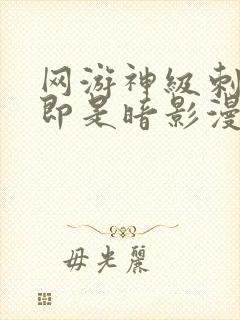 网游神级刺
即是暗影漫
毋光麗